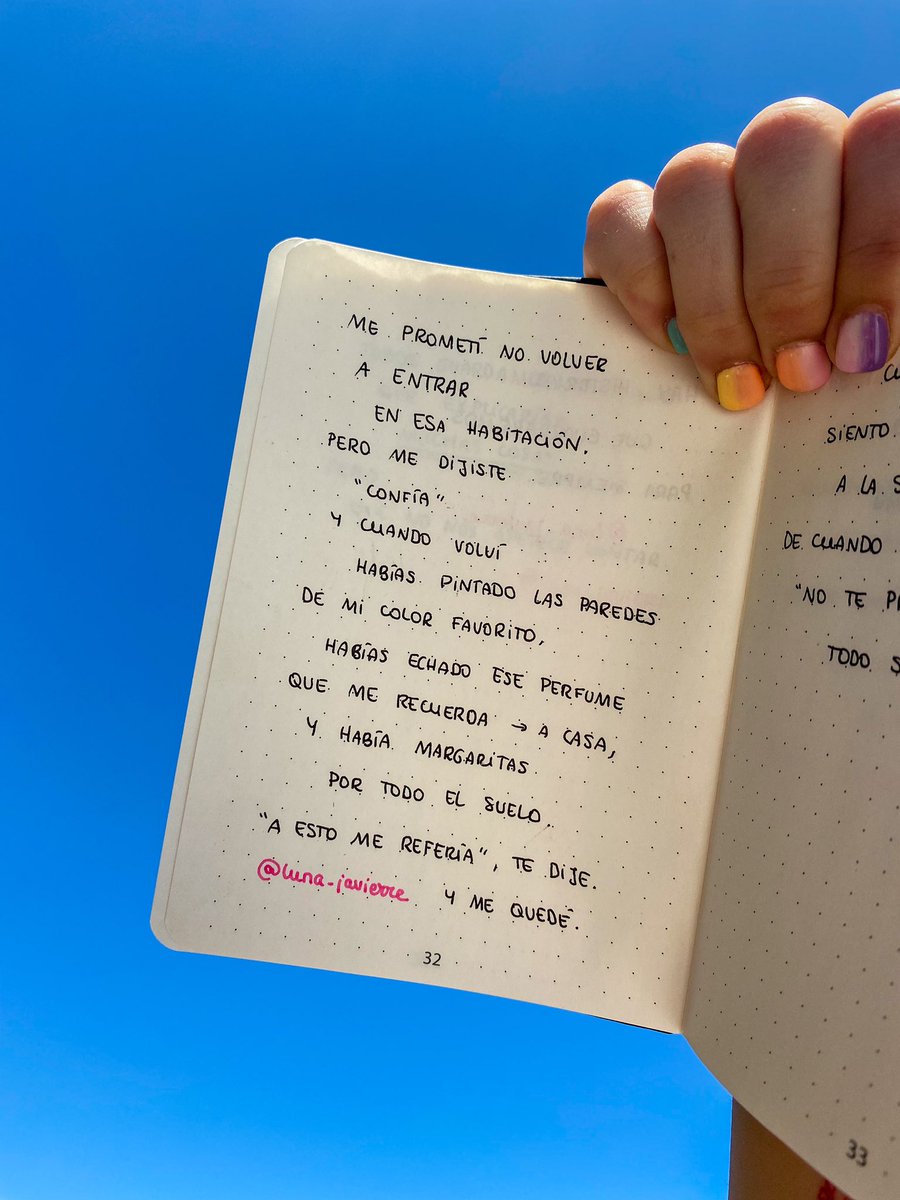 ME PROMETÍ NO VOLVER
A ENTRAR
EN ESA HABITACIÓN,
PERO ME DIJISTE
"CONFÍA"
Y CUANDO VOLVÍ
HABÍAS PINTADO LAS PAREDES
DE MI COLOR FAVORITO,
HABÍAS ECHADO ESE PERFUME
QUE ME RECUERDA → A CASA,
Y HABÍA MARGARITAS
POR TODO EL SUELO.
"A ESTO ME REFERÍA", TE DIJE.
@luna_javierre Y ME QUEDÉ.
32
SIENTO
A LA
DE CUANDO
"NO TE
TODO
33